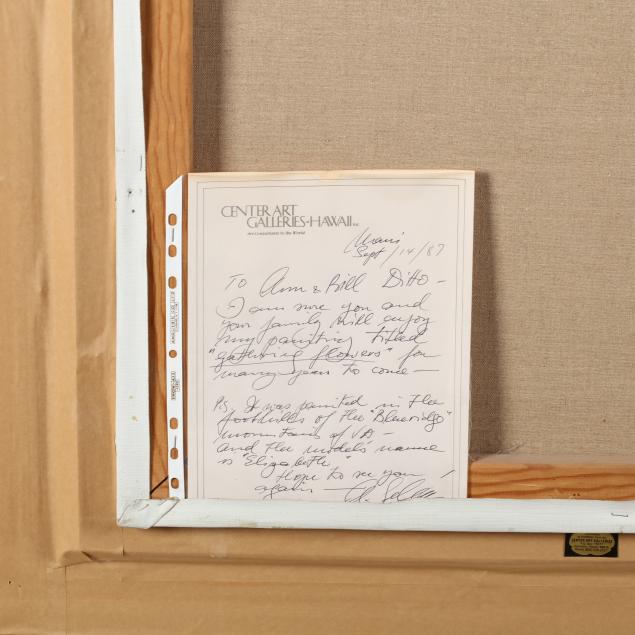 CENTER ART
GALLERIES-HAWAII INC.
Art Consultants to the World
Maui
Sept/14/87
TO Ann & Bill Ditto -
I am sure you and
your family will enjoy
my painting titled
"gathering flowers" for
many years to come -
P.S. It was painted in the
foothills of the "Blueridge"
mountains of VA -
and the model's name
is "Elizabeth"
Hope to see you
again -
CENTER ART GALLERIES